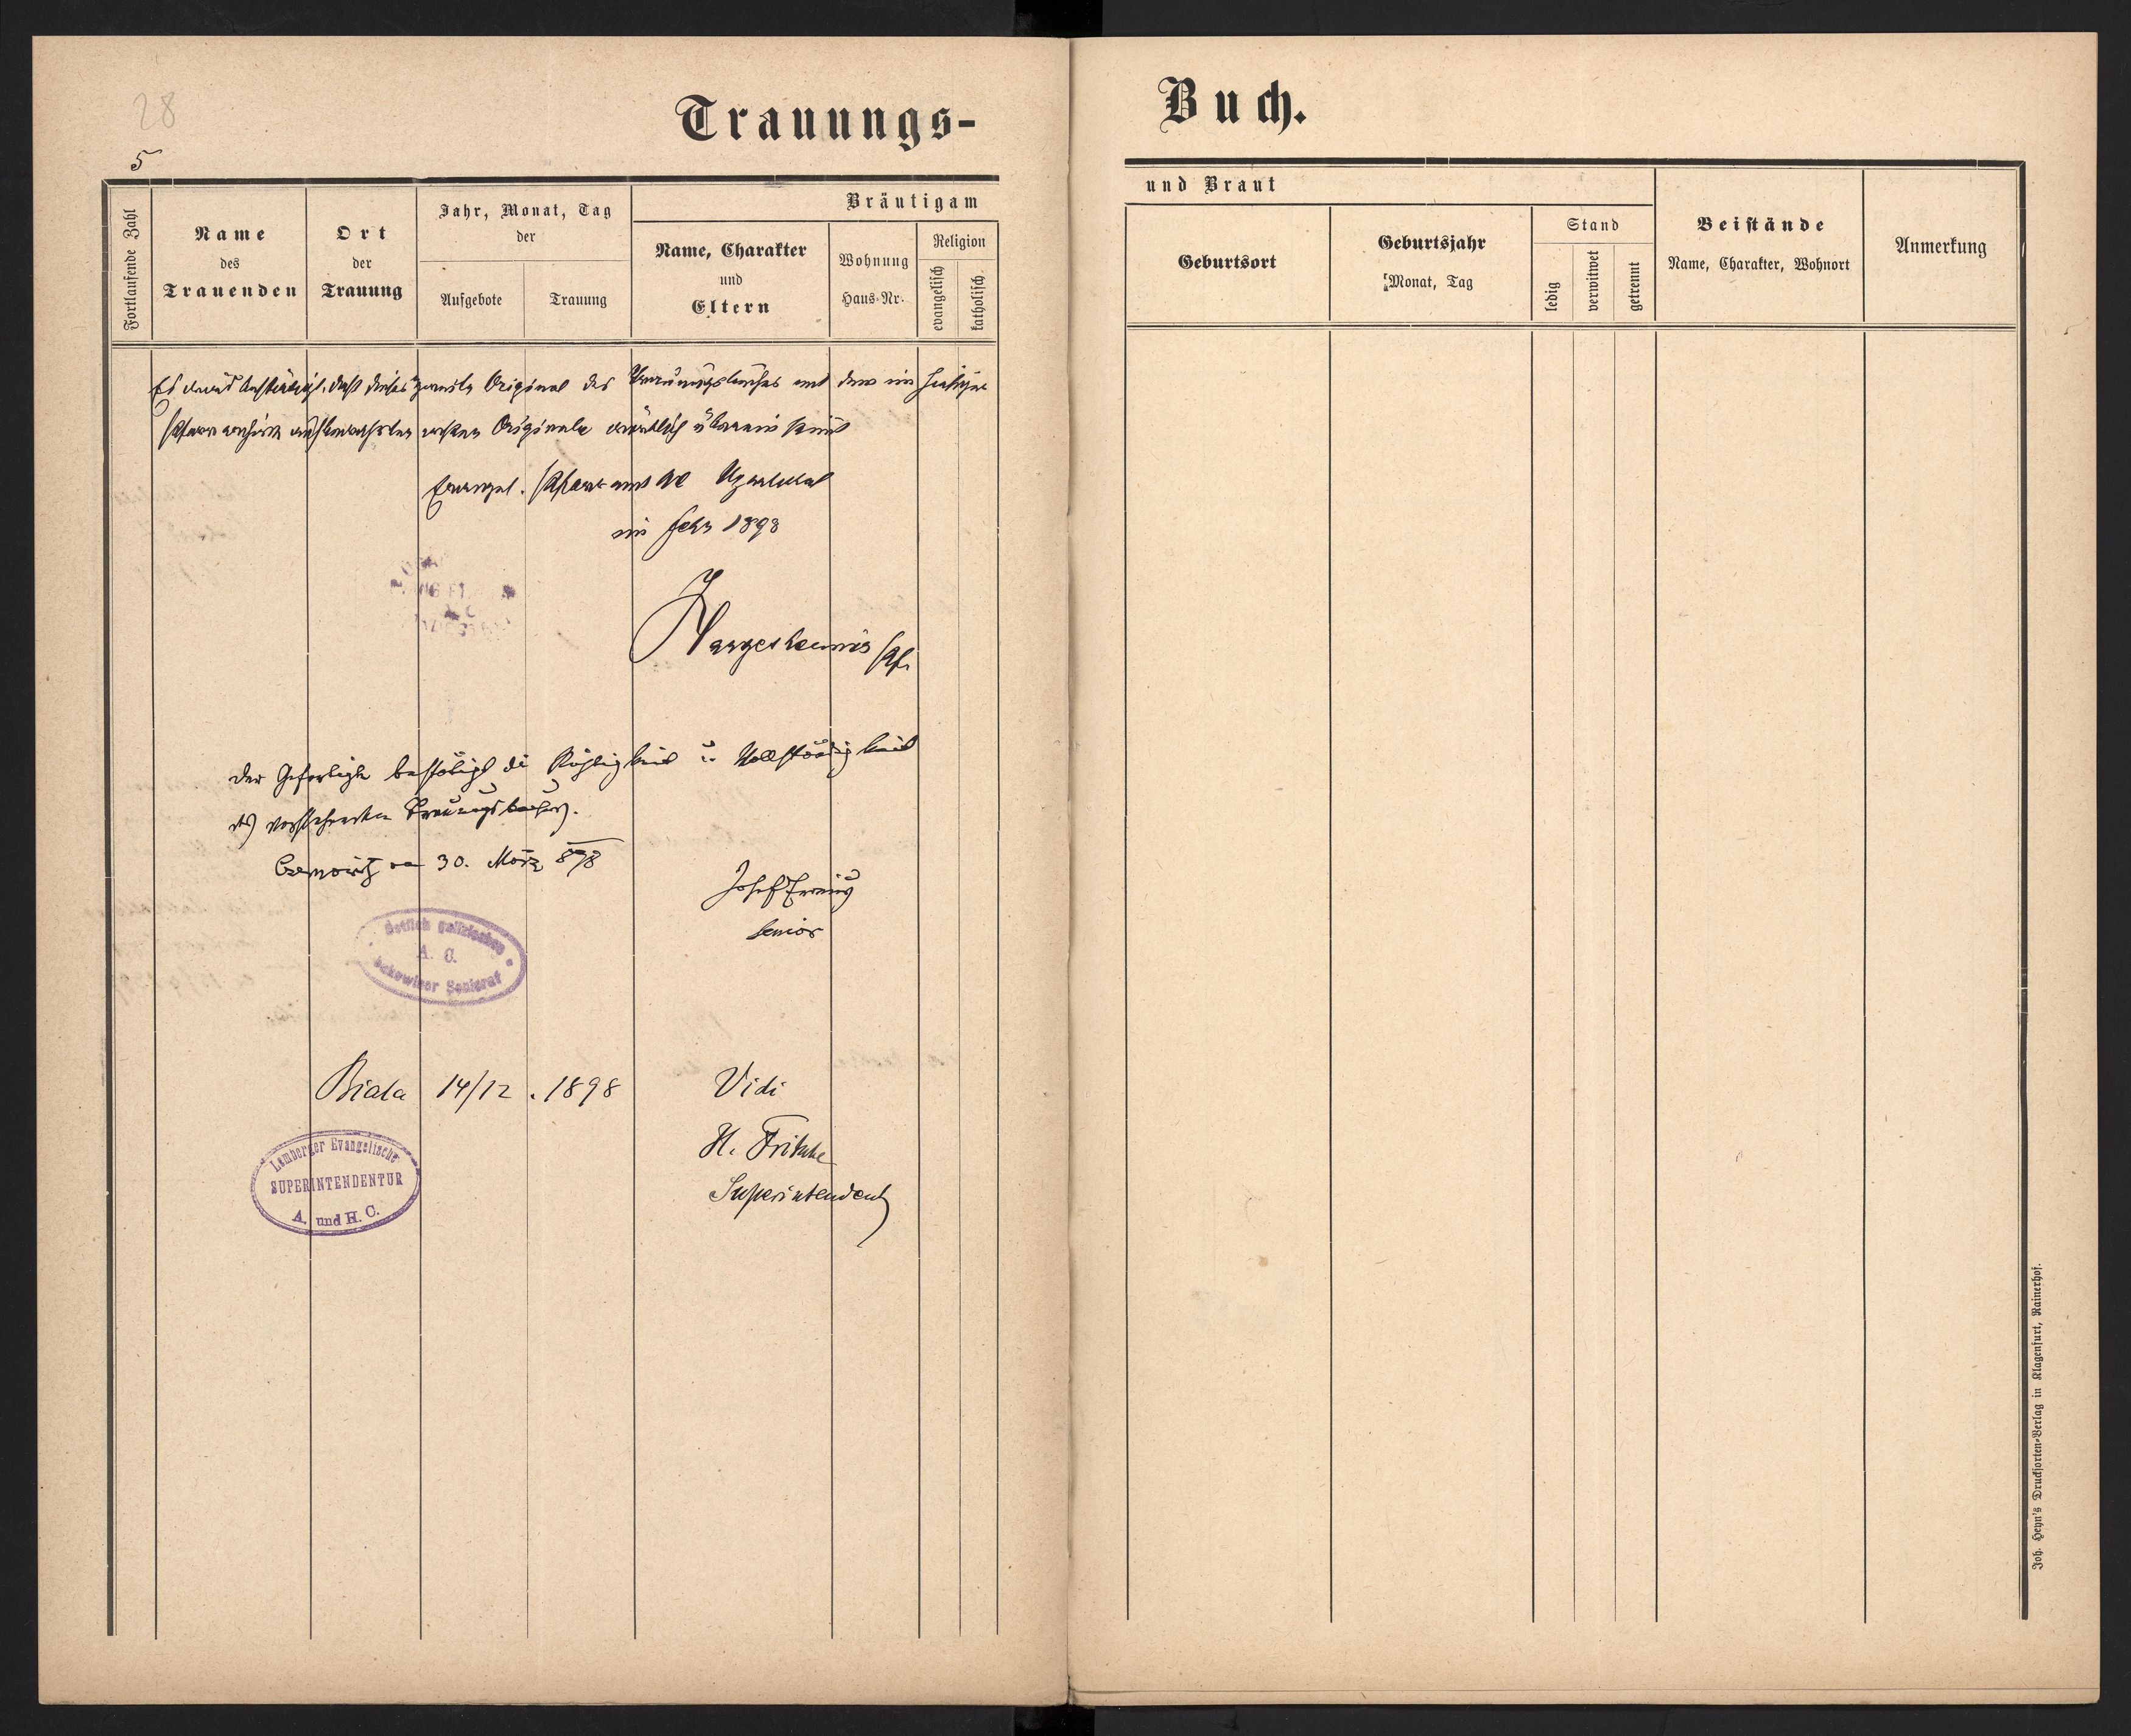 28
5
Trauungs-
Buch.
Fortlaufende Zahl
Name
des
Trauenden
Ort
der
Trauung
Jahr, Monat, Tag
der
Aufgebote
Trauung
Bräutigam
Name, Charakter
und
Eltern
Wohnung
Haus-Nr.
Religion
evangelisch
katholisch
und Braut
Geburtsort
Geburtsjahr
Monat, Tag
Stand
ledig
verwitwet
getrennt
Beistände
Name, Charakter, Wohnort
Anmerkung
Es wird bestätigt, daß dieses zweite Original des Trauungsbuches mit dem im hiesigen
Pfarrarchive aufbewahrten ersten Originale wörtlich übereinstimmt
Evangel. Pfarramt AC Ugartsthal
im Febr 1898
Hargesheimer Pf.
Der Gefertigte bestätigt die Richtigkeit u. Vollständigkeit
des vorstehenden Trauungsbuches.
Czernowitz am 30. März 898
Josef Fronius
Senior
Östlich galizisches
A. C.
Bukowiner Seniorat
Biala 14/12. 1898
Vidi
H. Fritsche
Superintendent
Lemberger Evangelische
SUPERINTENDENTUR
A. und H. C.
Joh. Heyn's Drucksorten-Verlag in Klagenfurt, Rainerhof.